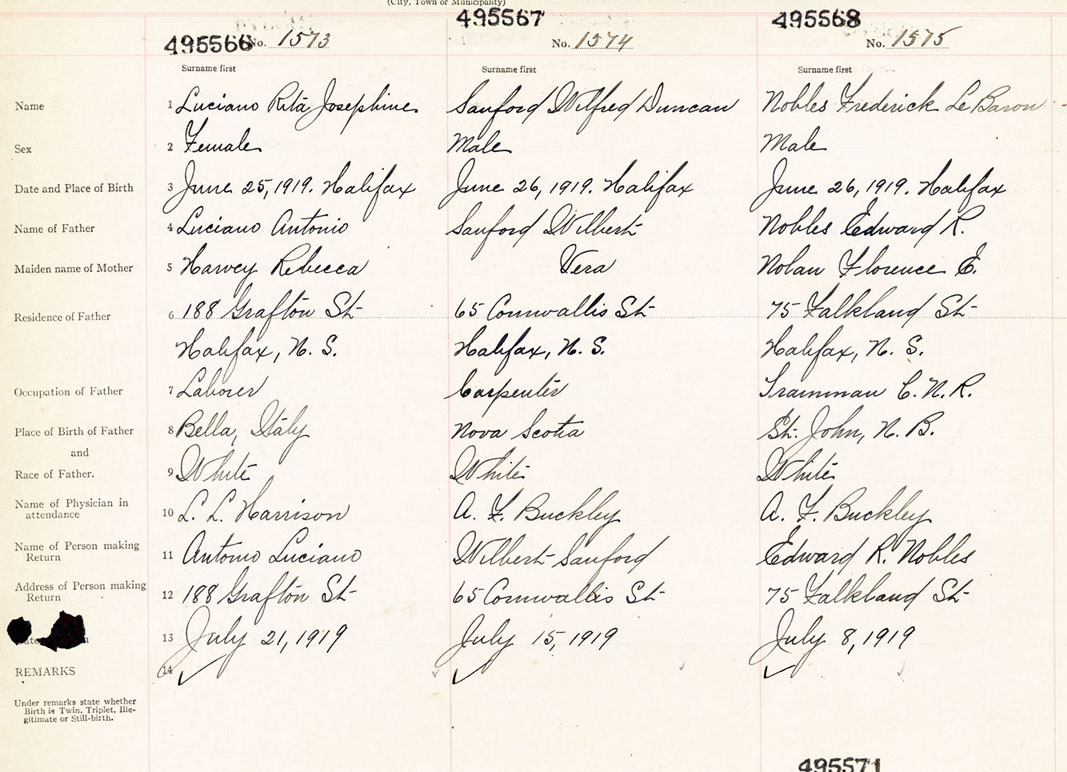 (City, Town or Municipality)
495566 No. 1573 495567 No. 1574 495568 No. 1575
Surname first Surname first Surname first
Name 1 Luciano Rita Josephine Sanford Wilfred Duncan Nobles Frederick Le Baron
Sex 2 Female Male Male
Date and Place of Birth 3 June 25, 1919. Halifax June 26, 1919. Halifax June 26, 1919. Halifax
Name of Father 4 Luciano Antonio Sanford Wilbert Nobles Edward R.
Maiden name of Mother 5 Harvey Rebecca Vera Nolan Florence E.
Residence of Father 6 188 Grafton St 65 Cornwallis St 75 Falkland St
Halifax, N. S. Halifax, N. S. Halifax, N. S.
Occupation of Father 7 Laborer Carpenter Trainman C. N. R.
Place of Birth of Father 8 Bella, Italy Nova Scotia St. John, N. B.
and
Race of Father. 9 White White White
Name of Physician in
attendance 10 L. L. Harrison A. F. Buckley A. F. Buckley
Name of Person making
Return 11 Antonio Luciano Wilbert Sanford Edward R. Nobles
Address of Person making
Return 12 188 Grafton St 65 Cornwallis St 75 Falkland St
13 July 21, 1919 July 15, 1919 July 8, 1919
REMARKS 14
Under remarks state whether
Birth is Twin, Triplet, Ille-
gitimate or Still-birth.
495571